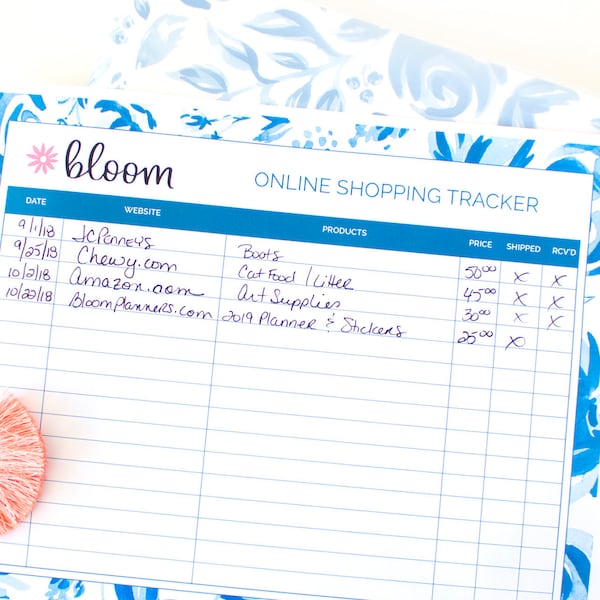 bloom ONLINE SHOPPING TRACKER
DATE WEBSITE PRODUCTS PRICE SHIPPED RCV'D
9/1/18 JCPenney's Boots 50⁰⁰ X X
9/25/18 Chewy.com Cat Food / Litter 45⁰⁰ X X
10/2/18 Amazon.com Art Supplies 30⁰⁰ X X
10/22/18 BloomPlanners.com 2019 Planner & Stickers 25⁰⁰ X